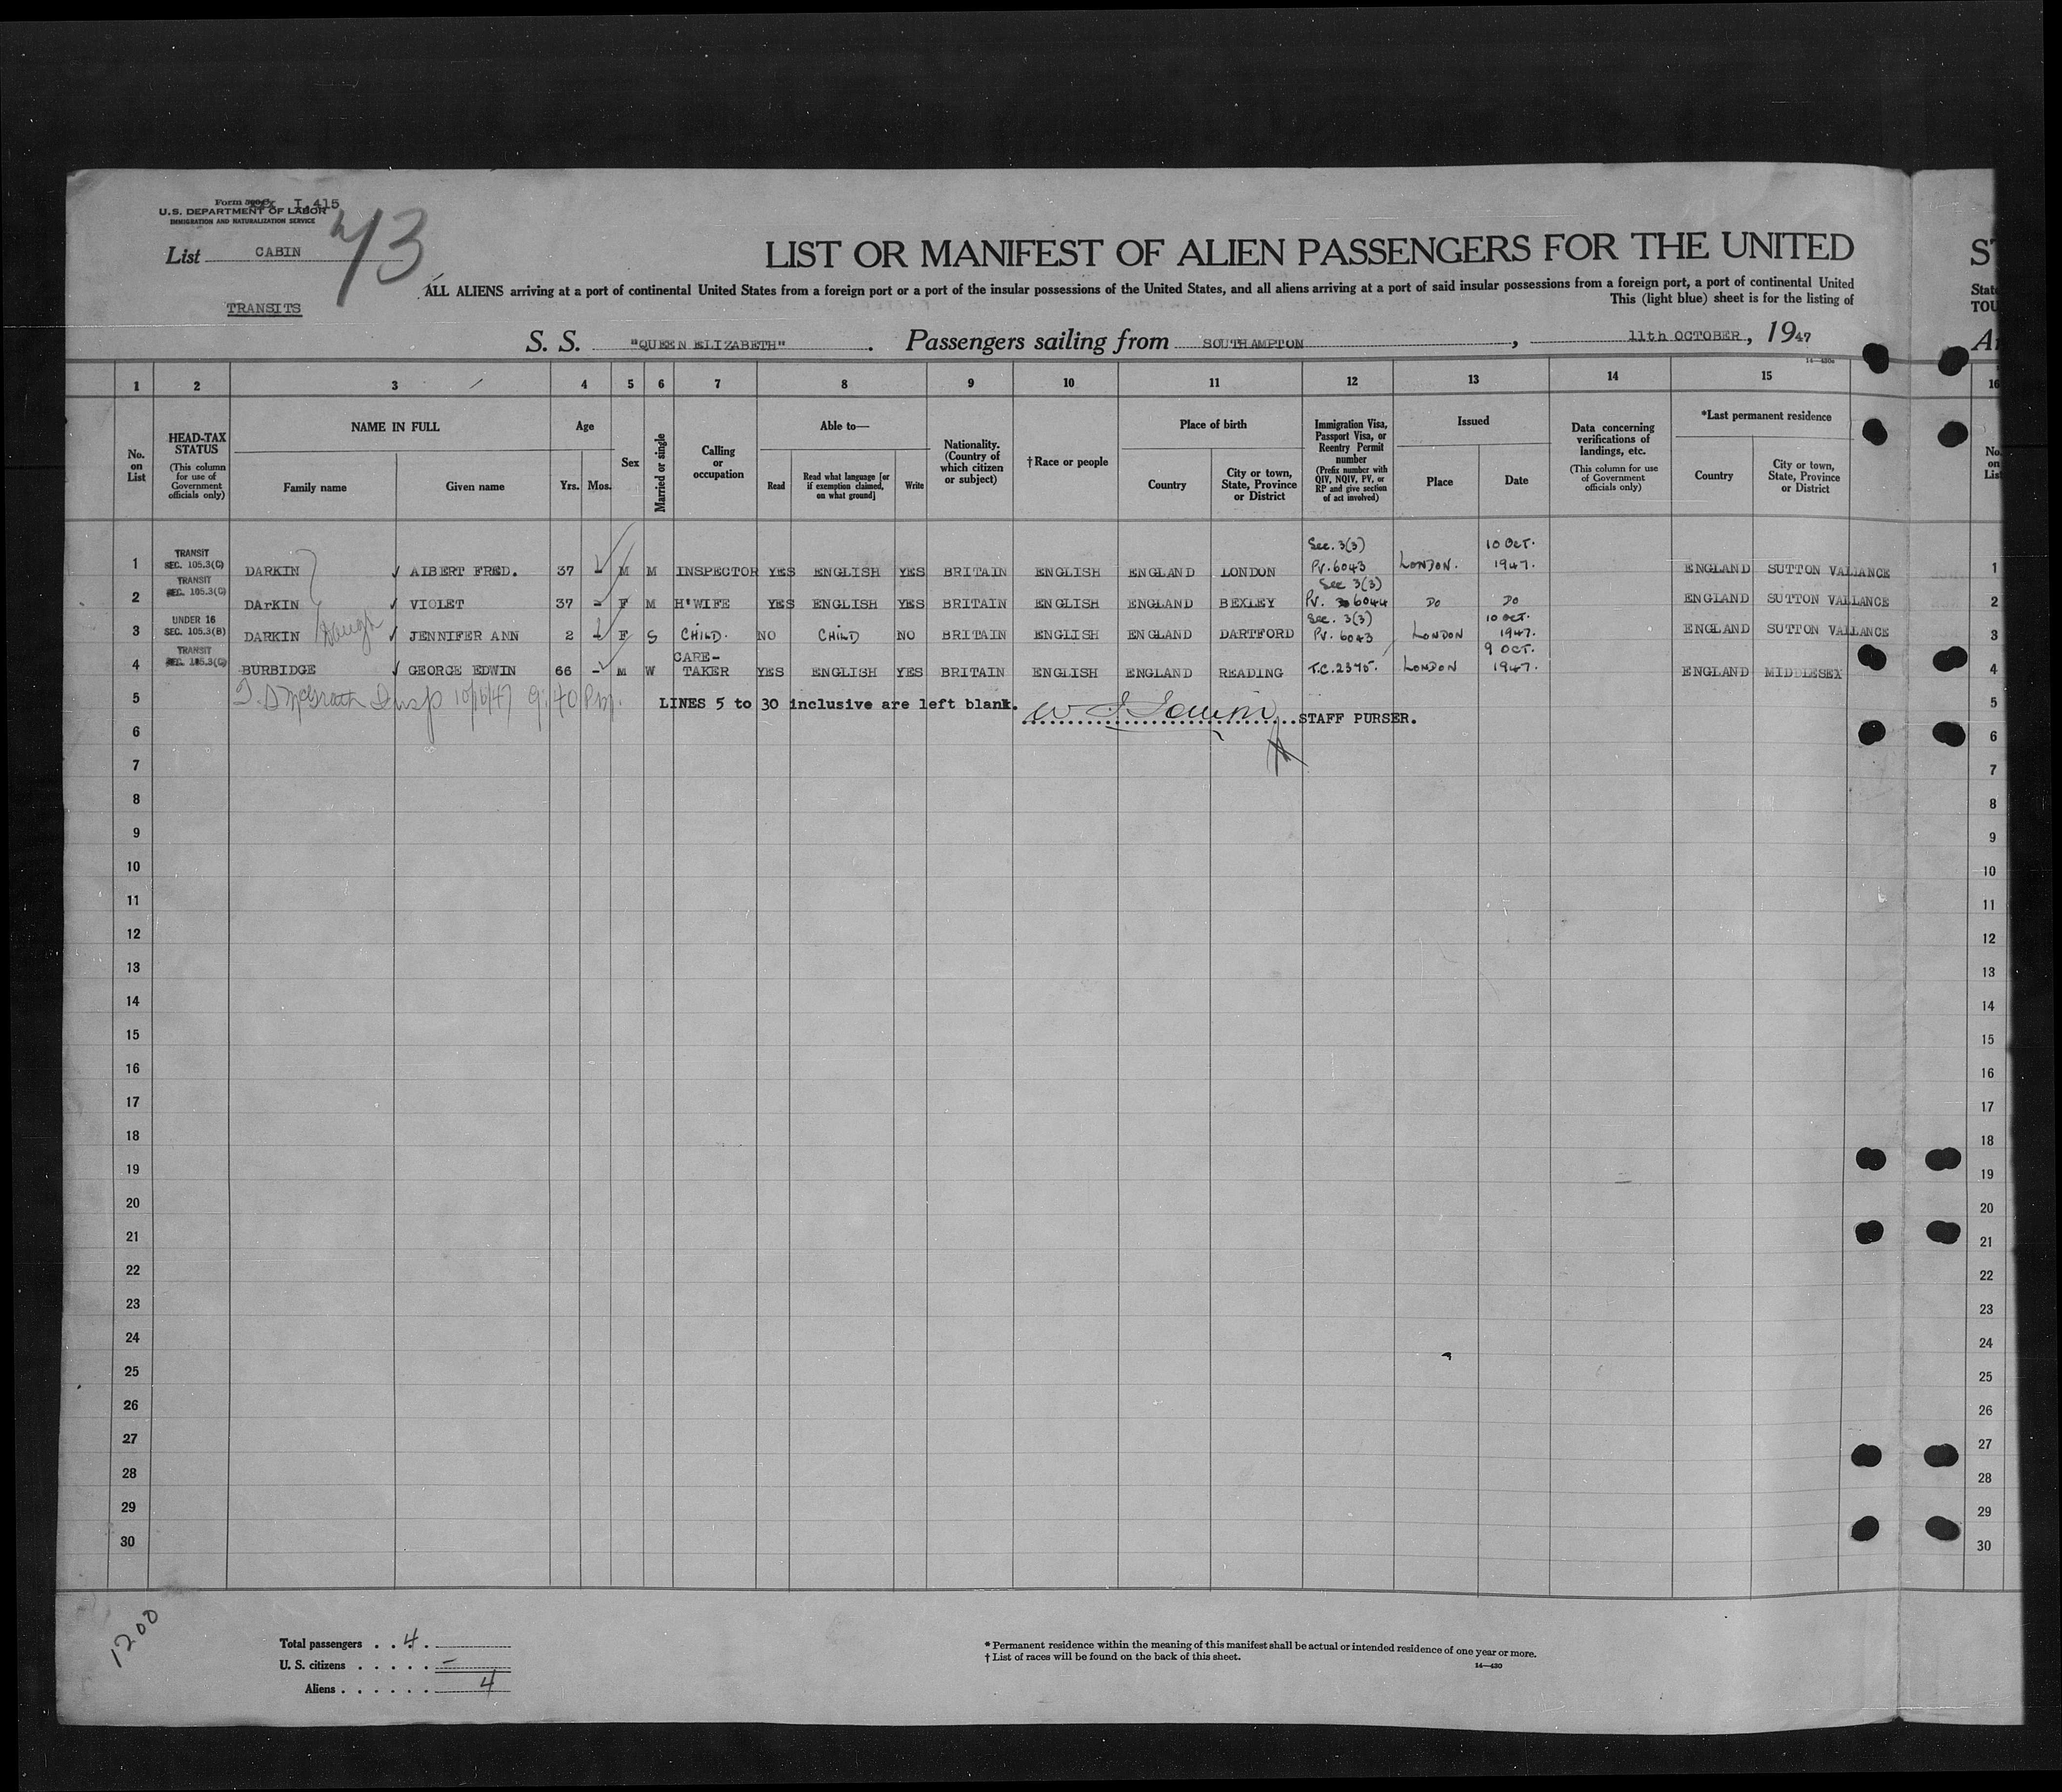 Form 500 I 415
U.S. DEPARTMENT OF LABOR
IMMIGRATION AND NATURALIZATION SERVICE
List CABIN
43
TRANSITS
LIST OR MANIFEST OF ALIEN PASSENGERS FOR THE UNITED
ST
ALL ALIENS arriving at a port of continental United States from a foreign port or a port of the insular possessions of the United States, and all aliens arriving at a port of said insular possessions from a foreign port, a port of continental United
State
This (light blue) sheet is for the listing of
TOU
S. S. "QUEEN ELIZABETH". Passengers sailing from SOUTHAMPTON, 11th OCTOBER, 1947
14—430a
1 2 3 4 5 6 7 8 9 10 11 12 13 14 15 16
No. on List
HEAD-TAX STATUS (This column for use of Government officials only)
NAME IN FULL
Family name Given name
Age
Yrs. Mos.
Sex
Married or single
Calling or occupation
Able to—
Read
Read what language [or if exemption claimed, on what ground]
Write
Nationality. (Country of which citizen or subject)
†Race or people
Place of birth
Country
City or town, State, Province or District
Immigration Visa, Passport Visa, or Reentry Permit number (Prefix number with QIV, NQIV, PV, or RP and give section of act involved)
Issued
Place Date
Data concerning verifications of landings, etc. (This column for use of Government officials only)
*Last permanent residence
Country
City or town, State, Province or District
No. on List
1 TRANSIT SEC. 105.3(C) DARKIN ALBERT FRED. 37 - M M INSPECTOR YES ENGLISH YES BRITAIN ENGLISH ENGLAND LONDON Sec. 3(3) PV. 6043 LONDON. 10 OCT. 1947. ENGLAND SUTTON VALIANCE 1
2 TRANSIT SEC. 105.3(C) DArKIN VIOLET 37 - F M H'WIFE YES ENGLISH YES BRITAIN ENGLISH ENGLAND BEXLEY Sec 3(3) PV. 6044 DO DO ENGLAND SUTTON VALLANCE 2
3 UNDER 16 SEC. 105.3(B) DARKIN Daugh JENNIFER ANN 2 F S CHILD. NO CHILD NO BRITAIN ENGLISH ENGLAND DARTFORD Sec. 3(3) PV. 6043 LONDON 10 OCT. 1947. ENGLAND SUTTON VALLANCE 3
4 TRANSIT SEC. 105.3(C) BURBIDGE GEORGE EDWIN 66 - M W CARE-TAKER YES ENGLISH YES BRITAIN ENGLISH ENGLAND READING T.C. 2375. LONDON 9 OCT. 1947. ENGLAND MIDDLESEX 4
5 McGrath Insp 10/16/47 9:40 P.m. LINES 5 to 30 inclusive are left blank. STAFF PURSER. 5
6 6
7 7
8 8
9 9
10 10
11 11
12 12
13 13
14 14
15 15
16 16
17 17
18 18
19 19
20 20
21 21
22 22
23 23
24 24
25 25
26 26
27 27
28 28
29 29
30 30
1200
Total passengers . . 4 .
U. S. citizens . . . . . —
Aliens . . . . . . 4
* Permanent residence within the meaning of this manifest shall be actual or intended residence of one year or more.
† List of races will be found on the back of this sheet.
14—430